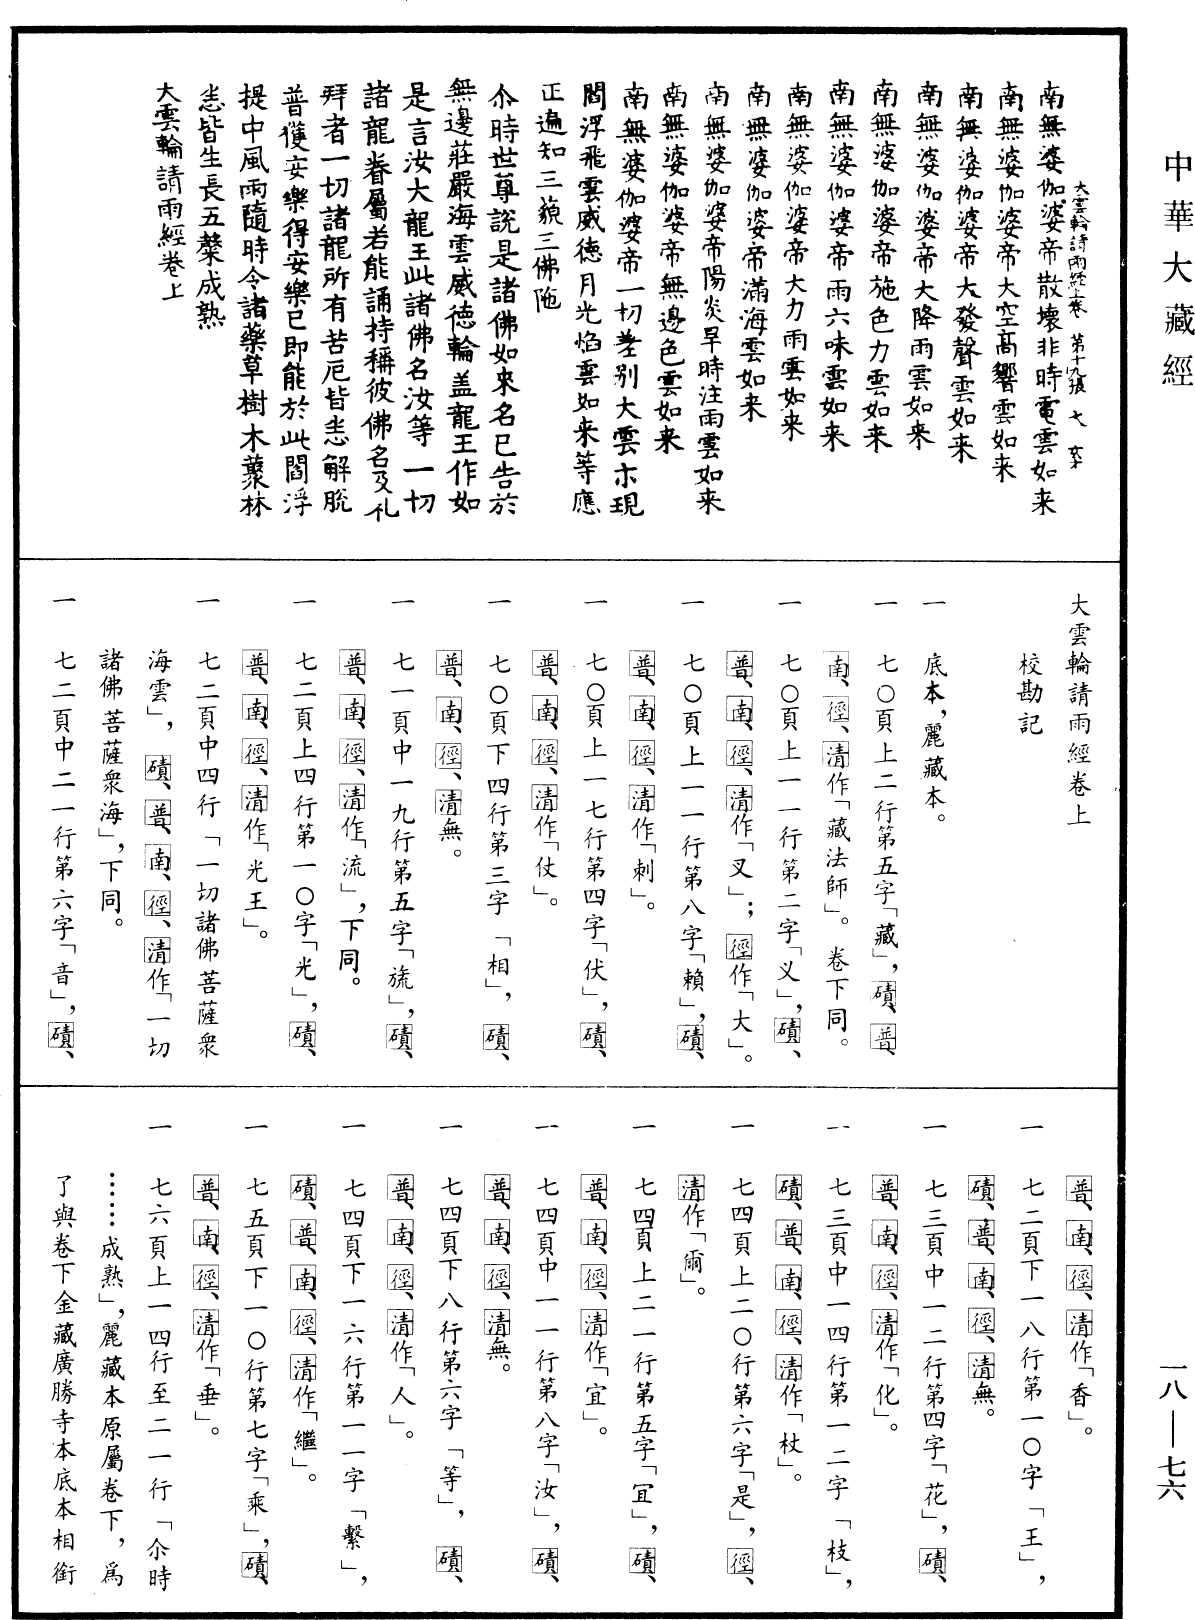 中華大藏經
大雲輪請雨經上卷　第十九張　七　女
南無婆伽婆帝散壞非時電雲如来
南無婆伽婆帝大空髙響雲如来
南無婆伽婆帝大發聲雲如来
南無婆伽婆帝大降雨雲如来
南無婆伽婆帝施色力雲如来
南無婆伽婆帝雨六味雲如来
南無婆伽婆帝大力雨雲如来
南無婆伽婆帝滿海雲如来
南無婆伽婆帝陽炎旱時注雨雲如来
南無婆伽婆帝無邊色雲如来
南無婆伽婆帝一切差别大雲示現
閻浮飛雲威徳月光焰雲如来等應
正遍知三藐三佛陁
尒時世尊說是諸佛如來名已告於
無邊莊嚴海雲威徳輪盖龍王作如
是言汝大龍王此諸佛名汝等一切
諸龍眷屬若能誦持稱彼佛名及礼
拜者一切諸龍所有苦厄皆悉解脫
普獲安樂得安樂已即能於此閻浮
提中風雨隨時令諸藥草樹木藂林
悉皆生長五糓成熟
大雲輪請雨經卷上
大雲輪請雨經卷上
校勘記
一　底本，麗藏本。
一　七〇頁上二行第五字「藏」，磧、普、
南、徑、清作「藏法師」。卷下同。
一　七〇頁上一一行第二字「义」，磧、
普、南、徑、清作「叉」；徑作「大」。
一　七〇頁上一一行第八字「賴」，磧、
普、南、徑、清作「刺」。
一　七〇頁上一七行第四字「伏」，磧、
普、南、徑、清作「仗」。
一　七〇頁下四行第三字「相」，磧、
普、南、徑、清無。
一　七一頁中一九行第五字「旒」，磧、
普、南、徑、清作「流」，下同。
一　七二頁上四行第一〇字「光」，磧、
普、南、徑、清作「光王」。
一　七二頁中四行「一切諸佛菩薩衆
海雲」，磧、普、南、徑、清作「一切
諸佛菩薩衆海」，下同。
一　七二頁中二一行第六字「音」，磧、
普、南、徑、清作「香」。
一　七二頁下一八行第一〇字「王」，
磧、普、南、徑、清無。
一　七三頁中一二行第四字「花」，磧、
普、南、徑、清作「化」。
一　七三頁中一四行第一二字「枝」，
磧、普、南、徑、清作「杖」。
一　七四頁上二〇行第六字「是」，徑、
清作「爾」。
一　七四頁上二一行第五字「冝」，磧、
普、南、徑、清作「宜」。
一　七四頁中一一行第八字「汝」，磧、
普、南、徑、清無。
一　七四頁下八行第六字「等」，磧、
普、南、徑、清作「人」。
一　七四頁下一六行第一一字「繫」，
磧、普、南、徑、清作「繼」。
一　七五頁下一〇行第七字「乘」，磧、
普、南、徑、清作「垂」。
一　七六頁上一四行至二一行「尒時
……成熟」，麗藏本原屬卷下，爲
了與卷下金藏廣勝寺本底本相銜
一八—七六